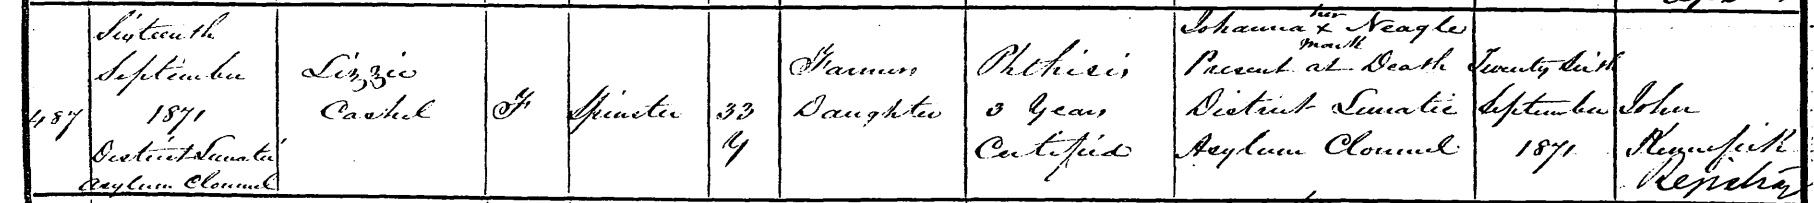 487
Sixteenth
September
1871
District Lunatic
Asylum Clonmel
Lizzie
Cashel
F
Spinster
33
Y
Farmers
Daughter
Phthisis
3 Years
Certified
Johanna her x Neagle
mark
Present at Death
District Lunatic
Asylum Clonmel
Twenty Sixth
September
1871
John
Kennefick
Registrar